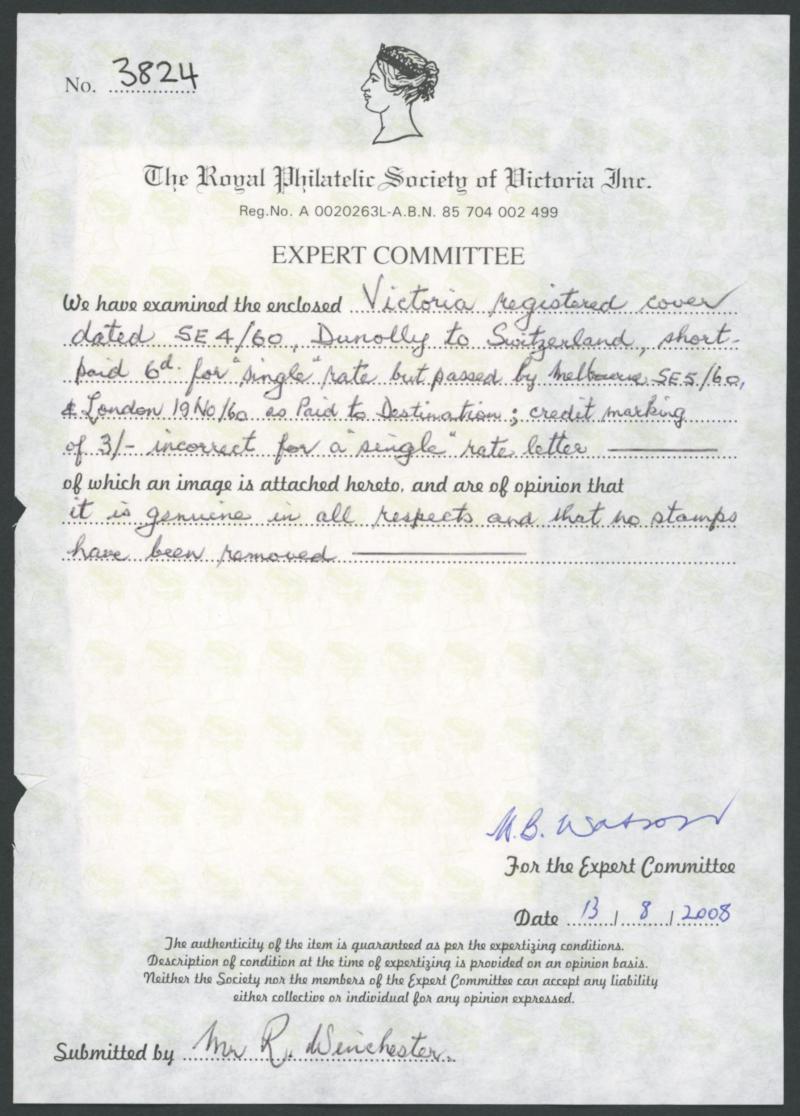 No. 3824
The Royal Philatelic Society of Victoria Inc.
Reg.No. A 0020263L-A.B.N. 85 704 002 499
EXPERT COMMITTEE
We have examined the enclosed Victoria registered cover
dated SE 4/60, Dunolly to Switzerland, short-
paid 6d. for "single" rate but passed by Melbourne SE 5/60,
& London 19 NO/60 as Paid to Destination; credit marking
of 3/- incorrect for a "single" rate letter
of which an image is attached hereto, and are of opinion that
it is genuine in all respects and that no stamps
have been removed
M.B. Watson
For the Expert Committee
Date 13 / 8 / 2008
The authenticity of the item is guaranteed as per the expertizing conditions.
Description of condition at the time of expertizing is provided on an opinion basis.
Neither the Society nor the members of the Expert Committee can accept any liability
either collective or individual for any opinion expressed.
Submitted by Mr R. Winchester.